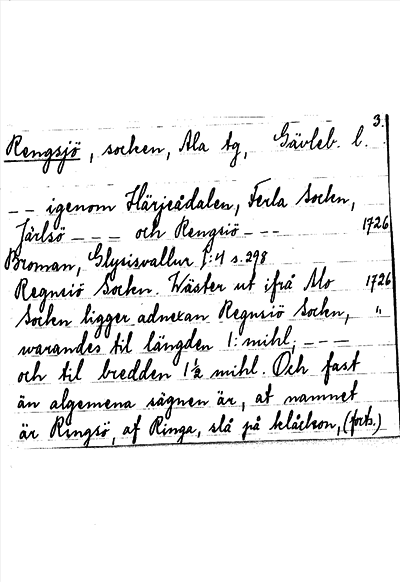 3.
Rengsjö, socken, Ala tg, Gävleb. l.
-- igenom Härjeådalen, Ferla Sockn,
Järlsö --- och Rengsiö --- 1726
Broman, Glysisvallur I:4 s. 298
Regnsiö Sockn. Wäster ut ifrå Mo 1726
Sockn ligger adnexan Regnsiö Sockn, "
warandes til längden 1: mihl, ---
och til bredden 1½ mihl. Och fast
än algemena sägnen är, at namnet
är Ringsö, af Ringa, slå på klåckon, (forts.)